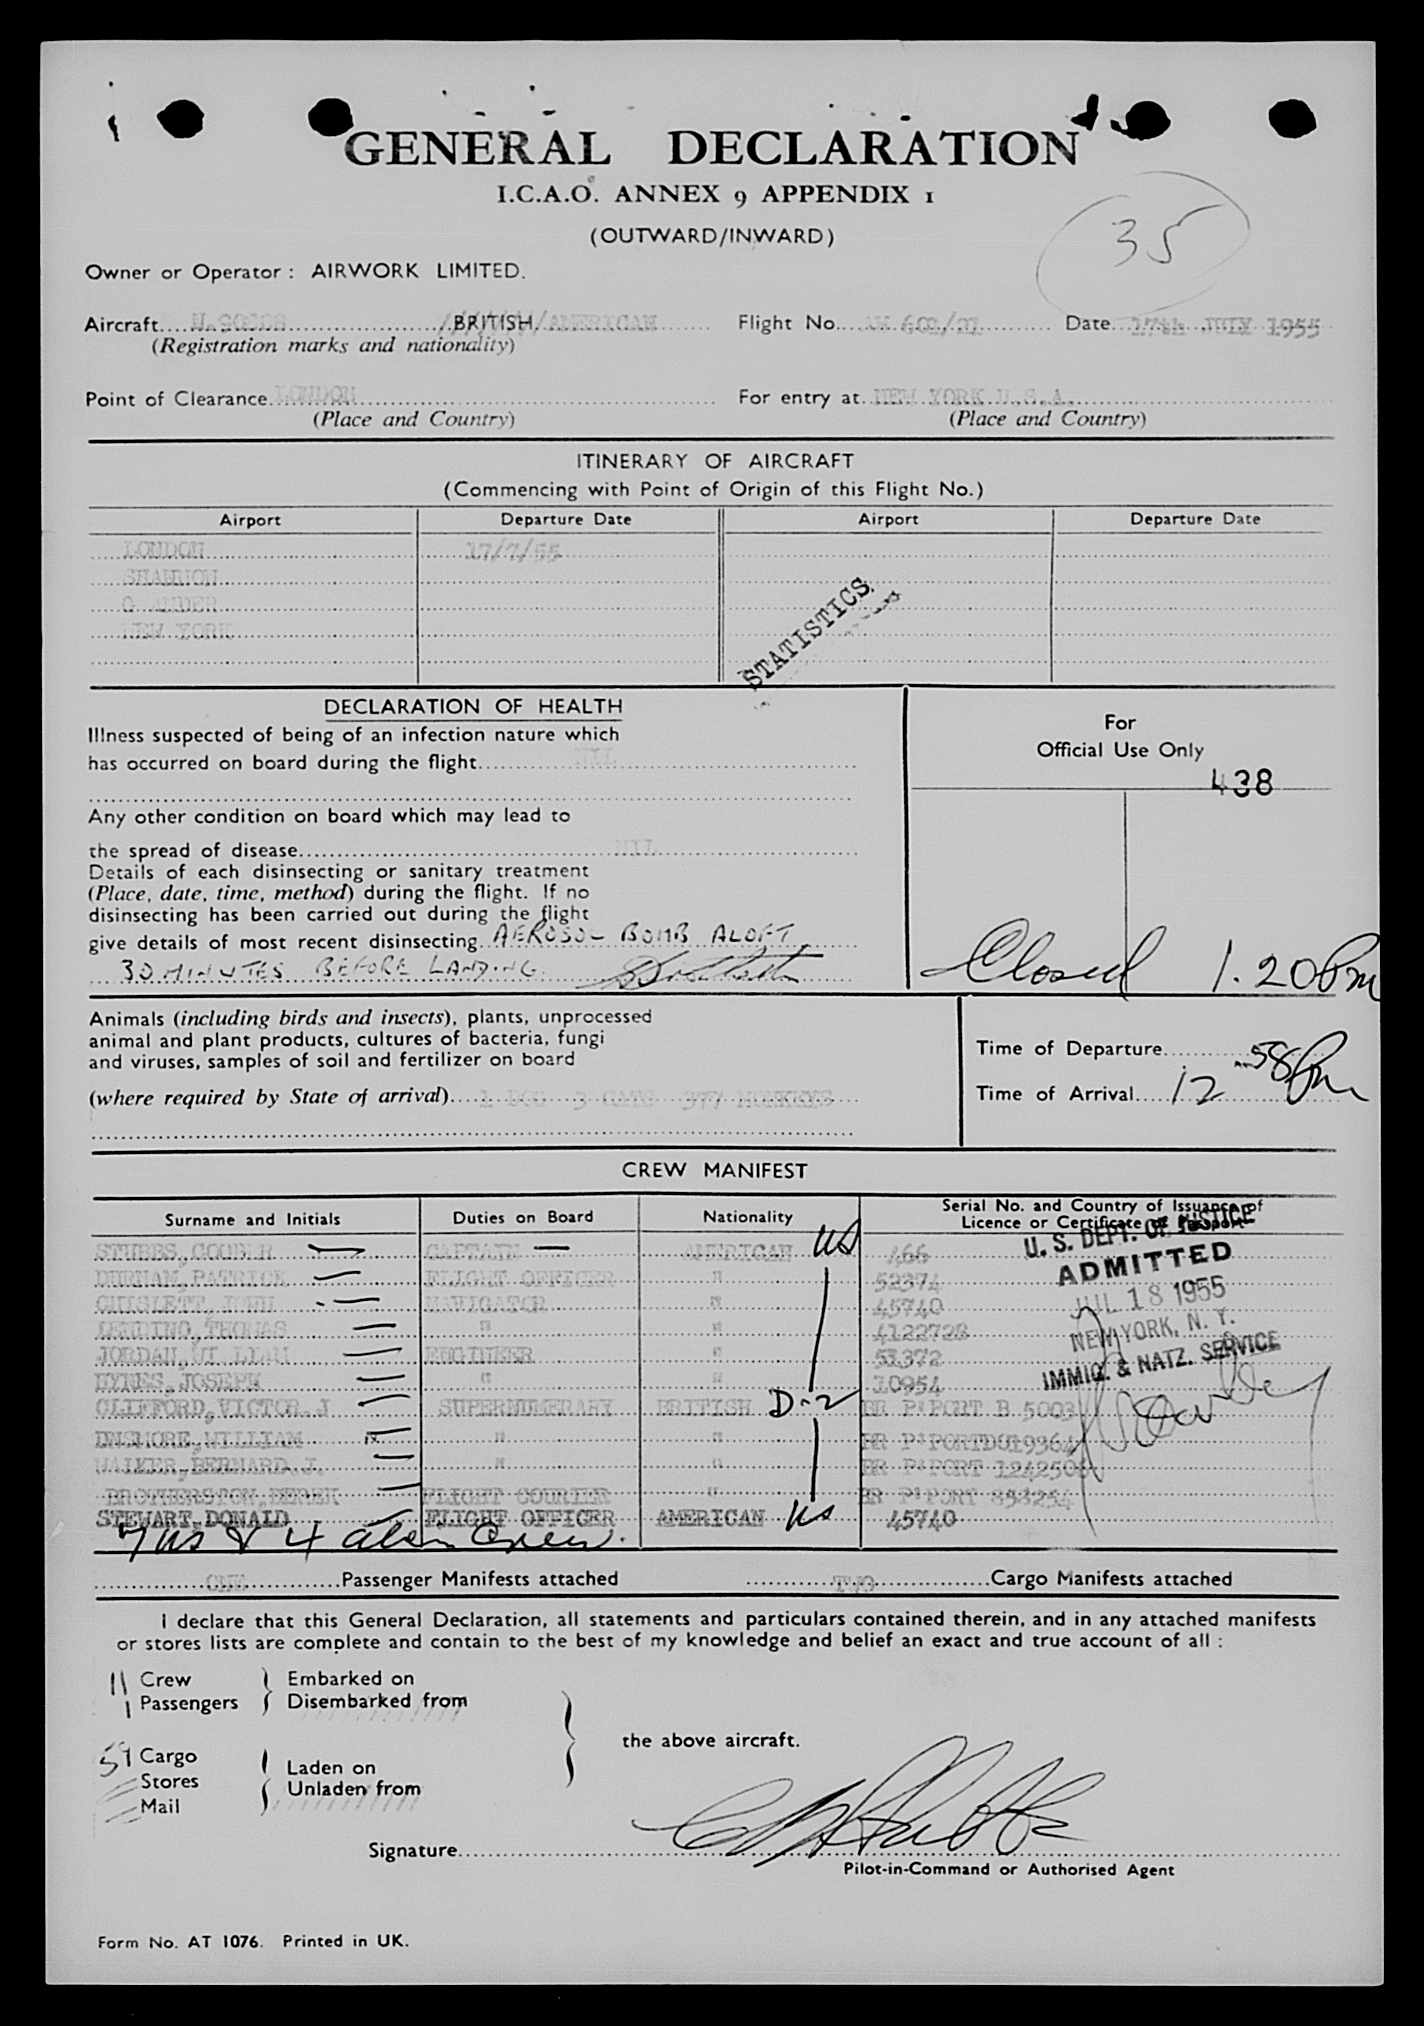 GENERAL DECLARATION
I.C.A.O. ANNEX 9 APPENDIX 1
(OUTWARD/INWARD)
35
Owner or Operator : AIRWORK LIMITED.
Aircraft BRITISH/AMERICAN Flight No. AW 601/21 Date 17th JULY 1955
(Registration marks and nationality)
Point of Clearance LONDON For entry at NEW YORK U.S.A.
(Place and Country) (Place and Country)
ITINERARY OF AIRCRAFT
(Commencing with Point of Origin of this Flight No.)
Airport Departure Date Airport Departure Date
LONDON 17/7/55
SHANNON
G ANDER
NEW YORK
STATISTICS
DECLARATION OF HEALTH
Illness suspected of being of an infection nature which
has occurred on board during the flight NIL
Any other condition on board which may lead to
the spread of disease NIL
Details of each disinsecting or sanitary treatment
(Place, date, time, method) during the flight. If no
disinsecting has been carried out during the flight
give details of most recent disinsecting AEROSOL BOMB ALOFT
30 MINUTES BEFORE LANDING
For
Official Use Only
438
Closed 1.20 Pm
Animals (including birds and insects), plants, unprocessed
animal and plant products, cultures of bacteria, fungi
and viruses, samples of soil and fertilizer on board
(where required by State of arrival) 1 DOG 3 CATS 377 MONKEYS
Time of Departure
Time of Arrival 12 58 Pm
CREW MANIFEST
Surname and Initials Duties on Board Nationality Serial No. and Country of Issuance of
Licence or Certificate or Passport
STUBBS, GOOBER CAPTAIN AMERICAN US 466
DURHAM, PATRICK FLIGHT OFFICER " 52374
NAVIGATOR " 45740
THOMAS " " 4122728
JORDAN, ENGINEER " 51372
HYNES, JOSEPH " " 10954
CLIFFORD, VICTOR.J SUPERNUMERARY BRITISH D-2 BR P'PORT B 5003
WILLIAM " " BR P'PORT
WALKER, BERNARD.J. " " BR P'PORT
BROTHERSTON, DEREK FLIGHT COURIER " BR P'PORT
STEWART, DONALD FLIGHT OFFICER AMERICAN US 45740
7 US & 4 alien Crew.
U. S. DEPT. OF JUSTICE
ADMITTED
JUL 18 1955
NEW YORK, N. Y.
IMMIG. & NATZ. SERVICE
ONE Passenger Manifests attached TWO Cargo Manifests attached
I declare that this General Declaration, all statements and particulars contained therein, and in any attached manifests
or stores lists are complete and contain to the best of my knowledge and belief an exact and true account of all :
11 Crew Embarked on
1 Passengers Disembarked from
the above aircraft.
59 Cargo Laden on
Stores Unladen from
Mail
Signature
Pilot-in-Command or Authorised Agent
Form No. AT 1076. Printed in UK.